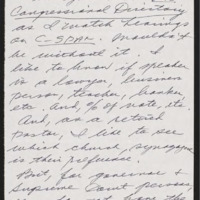 Congressional Directory
as I watch hearings
on C-SPAN. Wouldn't
be without it. I
like to know if speaker
is a lawyer, business
person, teacher, banker
etc. And, % of vote, etc.
And, as a retired
pastor, I like to see
which church, synagogue
is their preference.
But, for governor &
Supreme Court persons,